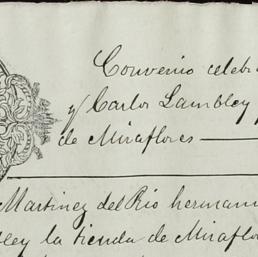 Convenio celebr
y Carlos Lambley
de Miraflores
Martinez del Rio herman
ley la tienda de Miraflo